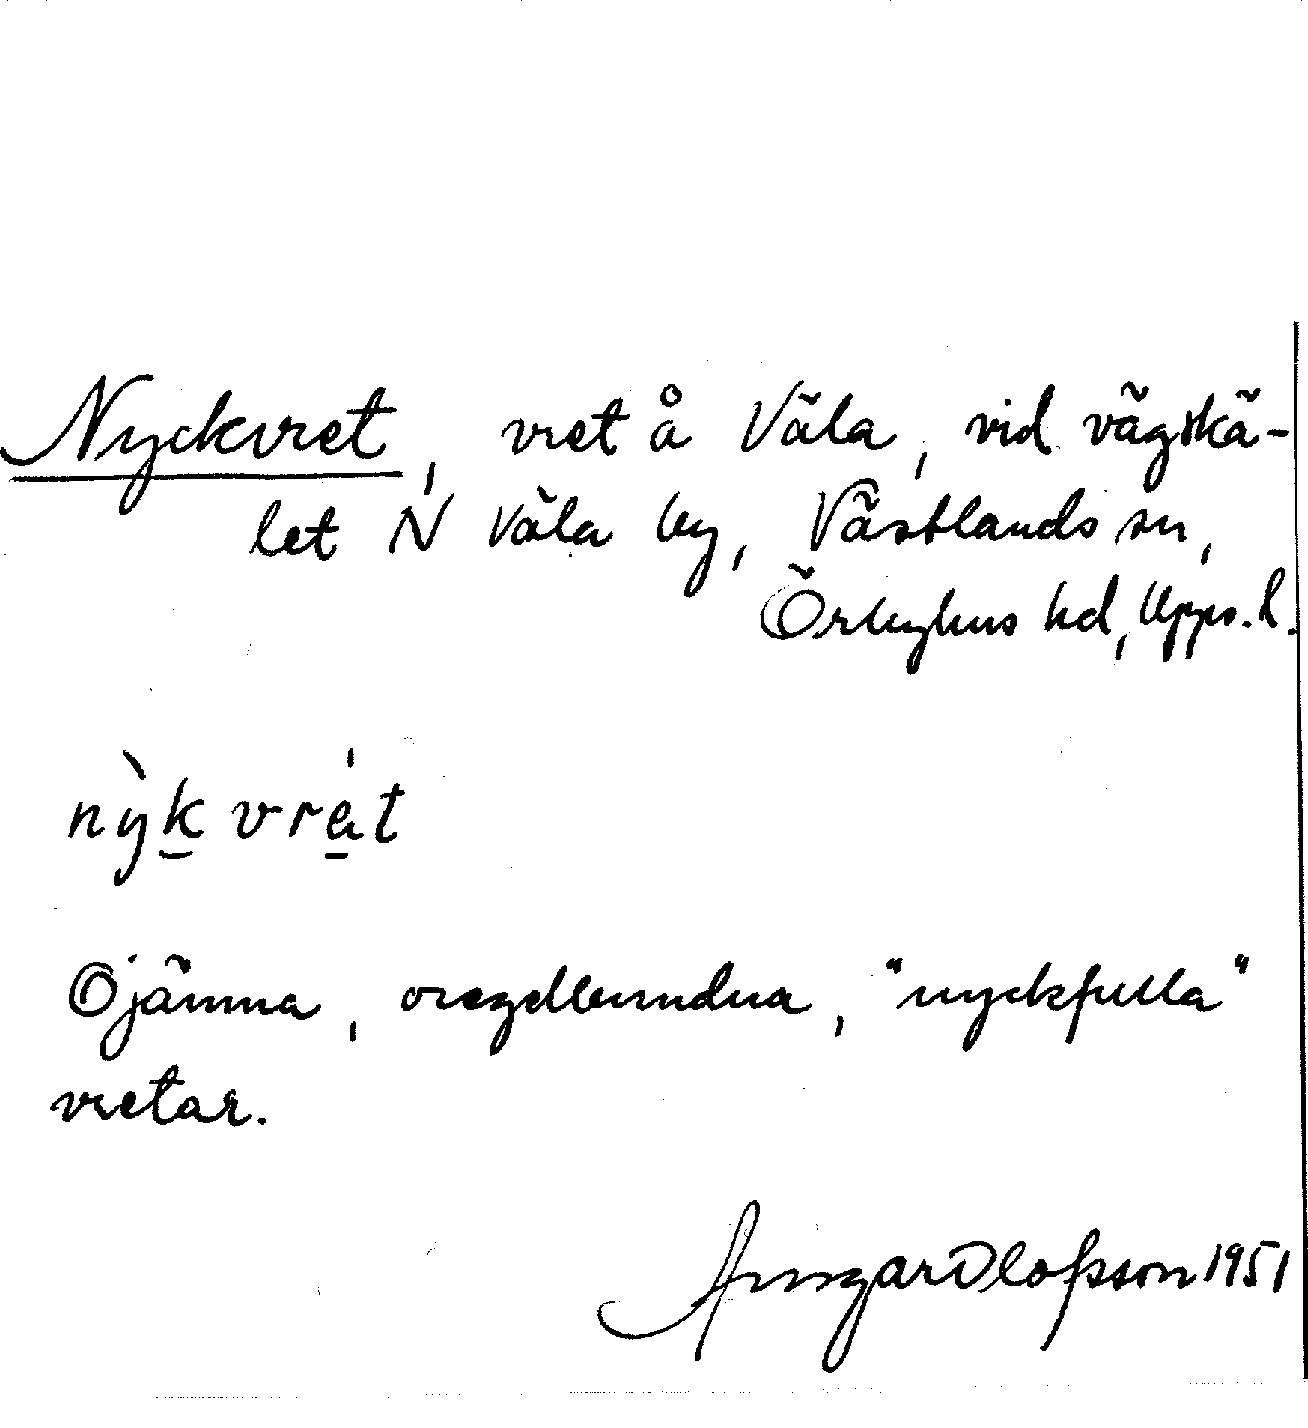 Nyckvret, vret å Väla, vid vägskä-
let N Väla by, Västlands sn,
Örbyhus hd, Upps. l.
nỳk̲ vre̲̍t
Ojämna, oregelbundna, "nyckfulla"
vretar.
Ansgar Olofsson 1951